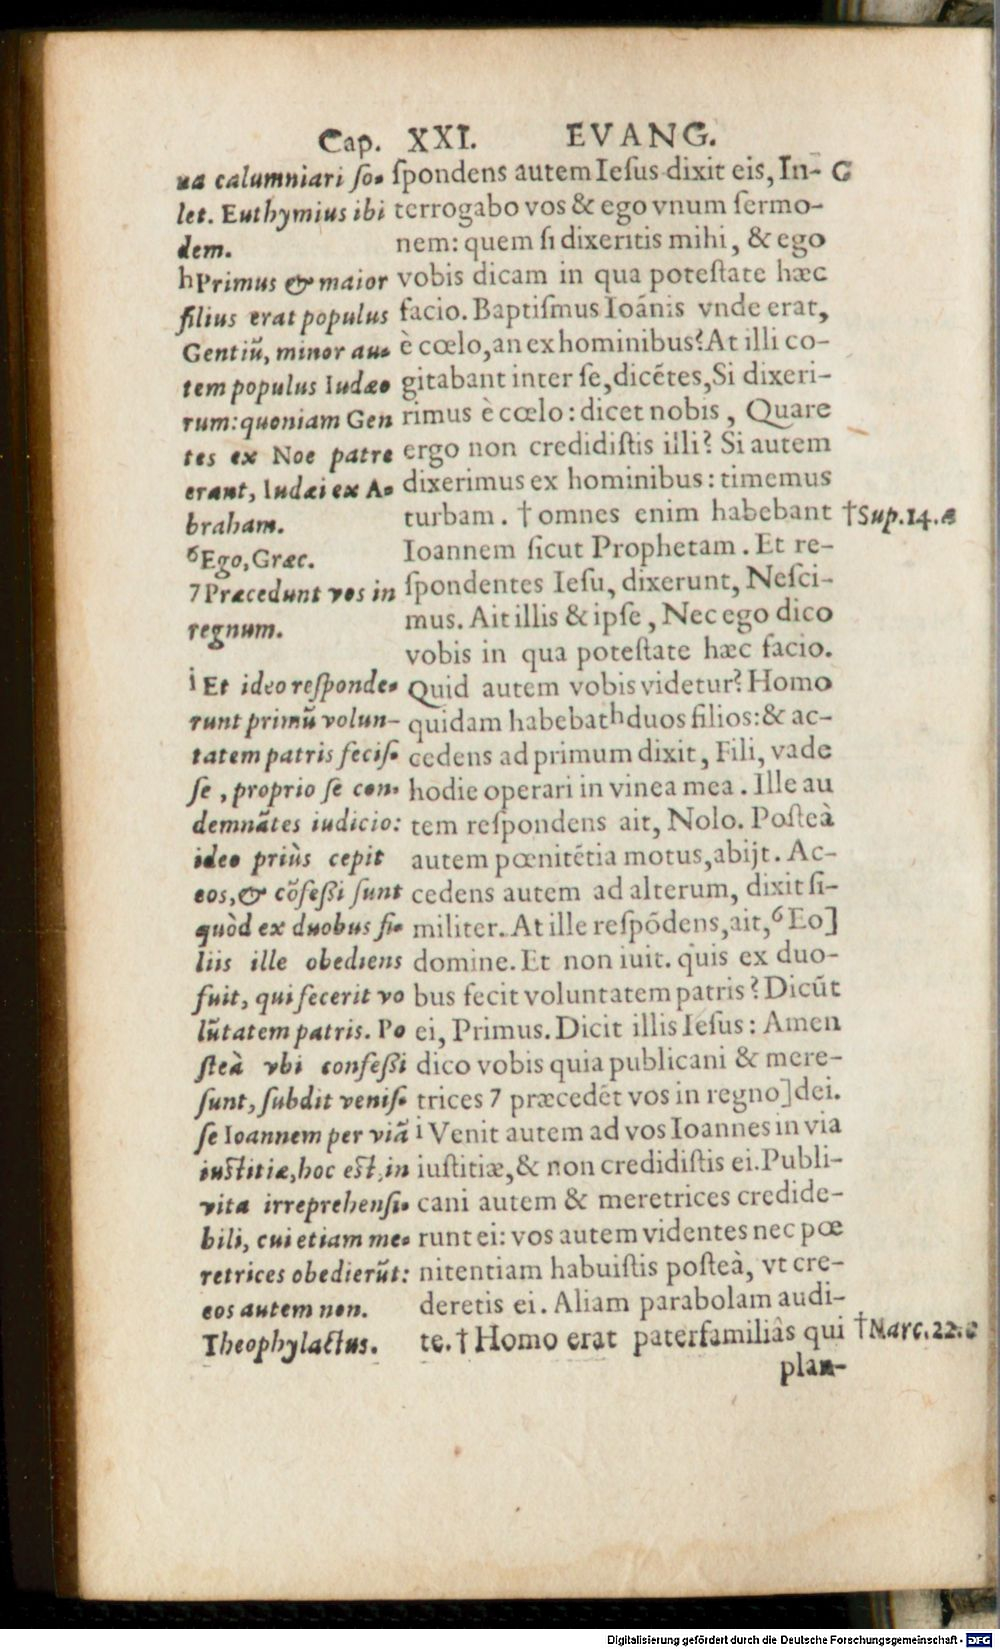 Cap. XXI. EVANG.
ua calumniari so-
let. Euthymius ibi
dem.
hPrimus & maior
filius erat populus
Gentiũ, minor au-
tem populus Iudæo
rum: quoniam Gen
tes ex Noe patre
erant, Iudæi ex A-
braham.
6Ego, Græc.
7Præcedunt vos in
regnum.
i Et ideo responde-
runt primũ volun-
tatem patris fecis-
se, proprio se con-
demnãtes iudicio:
ideo priùs cepit
eos, & cõfessi sunt
quòd ex duobus fi-
liis ille obediens
fuit, qui fecerit vo
lũtatem patris. Po
steà vbi confessi
sunt, subdit venis-
se Ioannem per viã
iustitiæ, hoc est, in
vita irreprehensi-
bili, cui etiam me-
retrices obedierũt:
eos autem non.
Theophylactus.
spondens autem Iesus dixit eis, In- G
terrogabo vos & ego vnum sermo-
nem: quem si dixeritis mihi, & ego
vobis dicam in qua potestate hæc
facio. Baptismus Ioãnis vnde erat,
è cœlo, an ex hominibus? At illi co-
gitabant inter se, dicẽtes, Si dixeri-
rimus è cœlo: dicet nobis, Quare
ergo non credidistis illi? Si autem
dixerimus ex hominibus: timemus
turbam. † omnes enim habebant
Ioannem sicut Prophetam. Et re-
spondentes Iesu, dixerunt, Nesci-
mus. Ait illis & ipse, Nec ego dico
vobis in qua potestate hæc facio.
Quid autem vobis videtur? Homo
quidam habebat hduos filios: & ac-
cedens ad primum dixit, Fili, vade
hodie operari in vinea mea. Ille au
tem respondens ait, Nolo. Posteà
autem pœnitẽtia motus, abijt. Ac-
cedens autem ad alterum, dixit si-
militer. At ille respõdens, ait, 6Eo]
domine. Et non iuit. quis ex duo-
bus fecit voluntatem patris? Dicũt
ei, Primus. Dicit illis Iesus: Amen
dico vobis quia publicani & mere-
trices 7 præcedẽt vos in regno] dei.
i Venit autem ad vos Ioannes in via
iustitiæ, & non credidistis ei. Publi-
cani autem & meretrices credide-
runt ei: vos autem videntes nec pœ
nitentiam habuistis posteà, vt cre-
deretis ei. Aliam parabolam audi-
te. † Homo erat paterfamiliâs qui
plan-
†Sup. 14. a
†Marc. 22. a
Digitalisierung gefördert durch die Deutsche Forschungsgemeinschaft - DFG